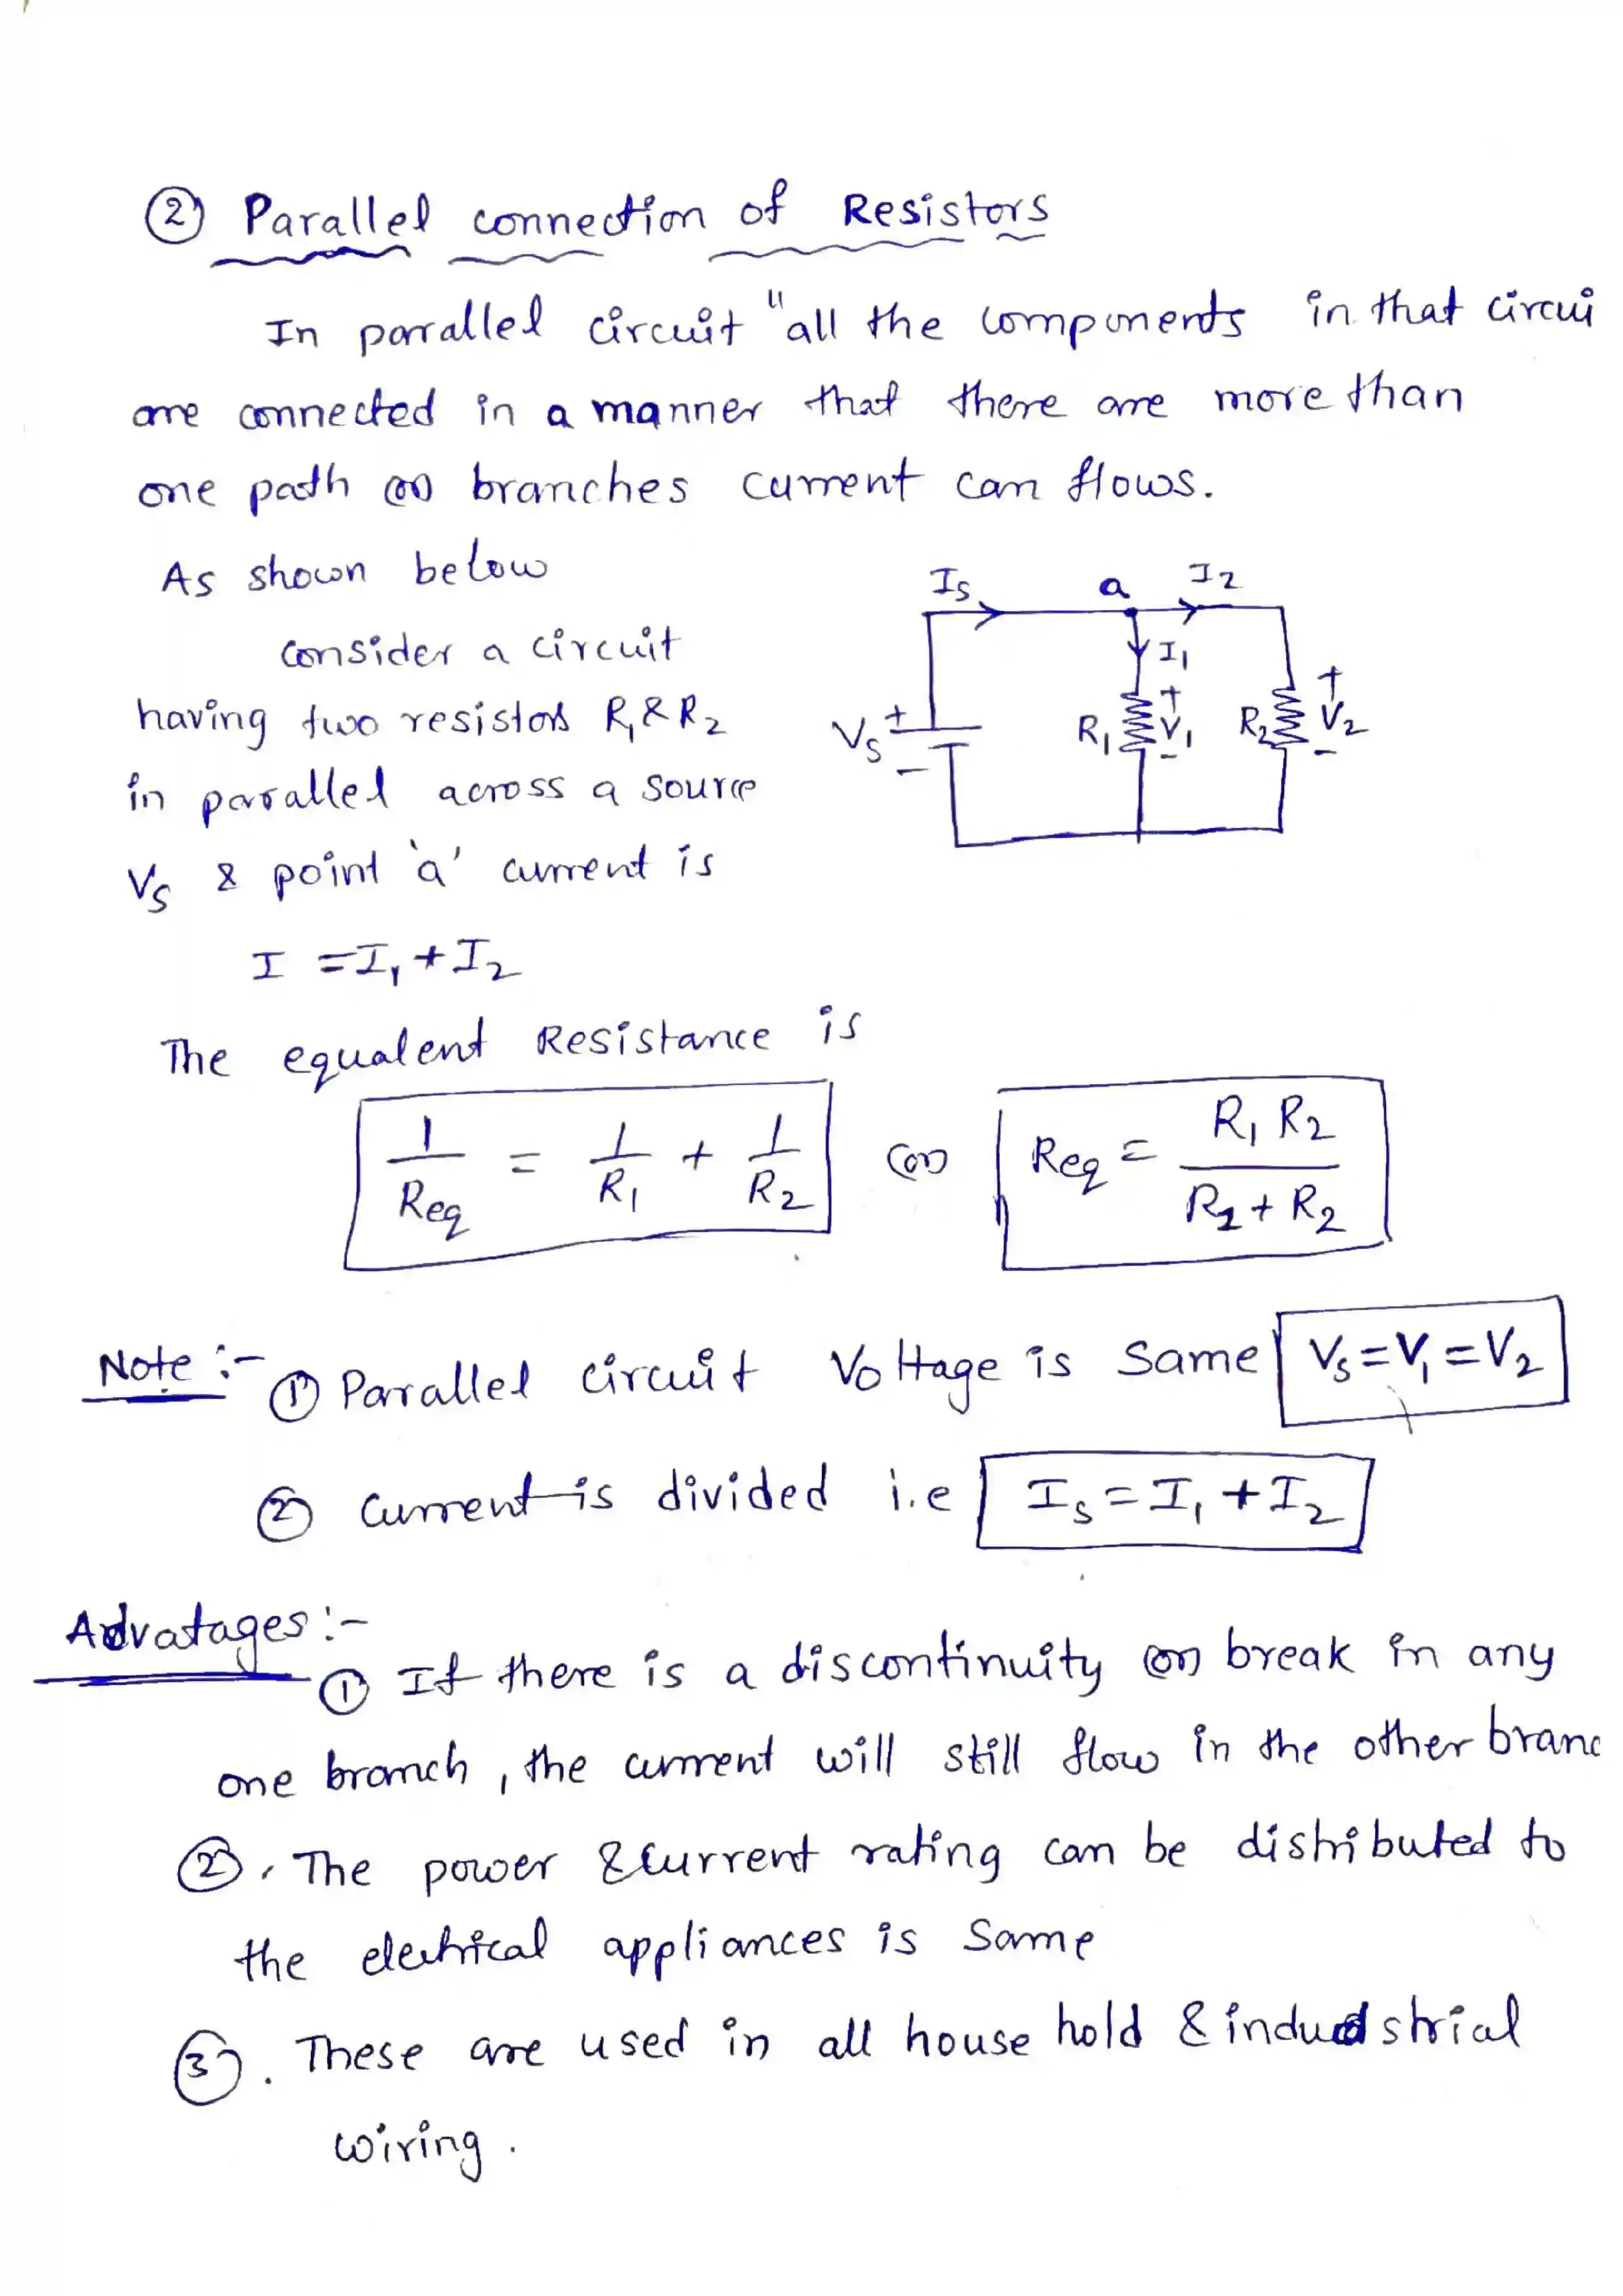 ② Parallel connection of Resistors
In parallel circuit "all the components in that circui
are connected in a manner that there are more than
one path (or) branches current can flows.
As shown below
Consider a circuit
having two resistors R₁ & R₂
in parallel across a source
Vs & point 'a' current is
Is a I2
I1
Vs + - R1 + V1 - R2 + V2 -
I = I₁ + I₂
The equalent Resistance is
1/Req = 1/R₁ + 1/R₂ (or) Req = R₁ R₂ / R₁ + R₂
Note :- ① Parallel circuit Voltage is Same Vs = V₁ = V₂
② Current is divided i.e Is = I₁ + I₂
Advatages :-
① If there is a discontinuity (or) break in any
one branch, the current will still flow in the other branc
②. The power & current rating can be distributed to
the electrical appliances is Same
③. These are used in all house hold & industrial
wiring.